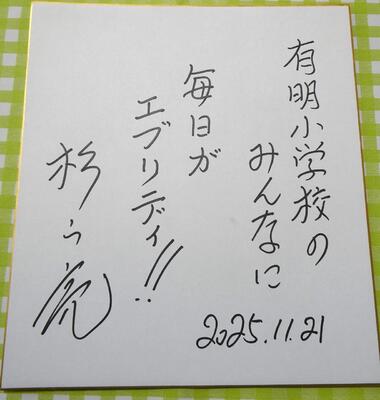 有明小学校の
みんなに
毎日が
エブリディ!!
杉
2025.11.21